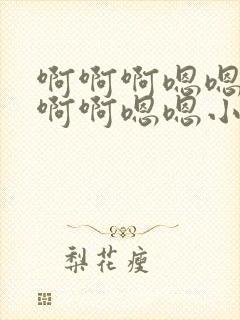 啊啊啊嗯嗯
啊啊嗯嗯小
梨花瘦